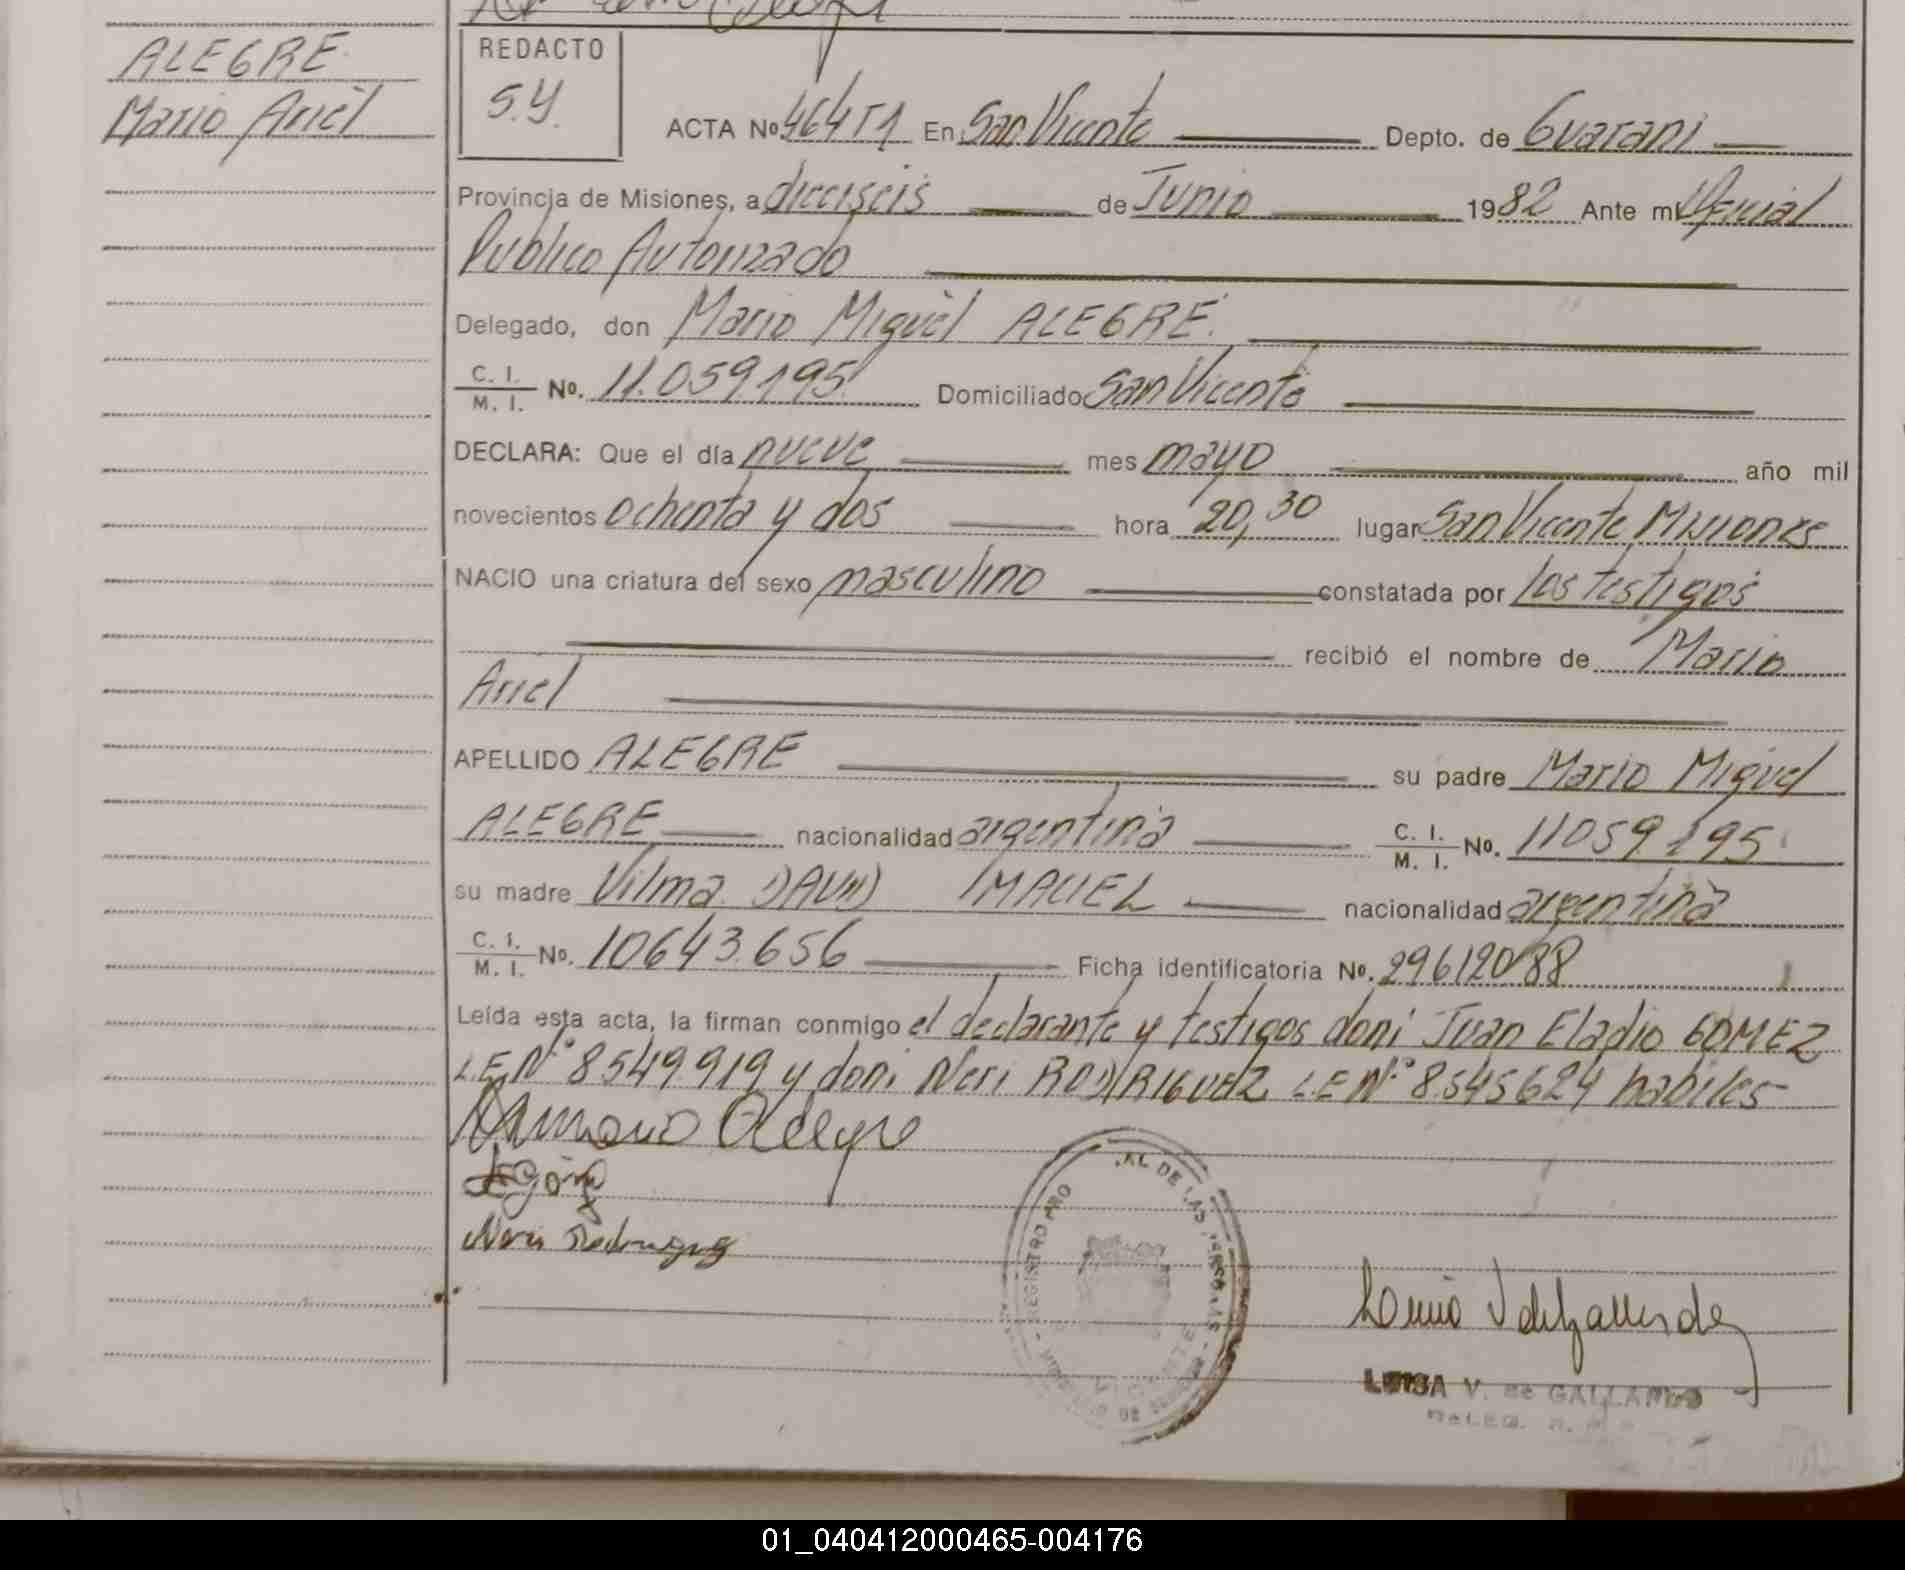 ALEGRE
Mario Ariel
REDACTO
S.Y.
ACTA No 464 T1 En San Vicente Depto. de Guarani
Provincia de Misiones, a dieciseis de Junio 1982 Ante mi Oficial
Publico Autorizado
Delegado, don Mario Miguel ALEGRE.
C. I. / M. I. No. 11.059.195 Domiciliado San Vicente
DECLARA: Que el día nueve mes mayo año mil
novecientos ochenta y dos hora 20,30 lugar San Vicente Misiones
NACIO una criatura del sexo masculino constatada por los testigos
recibió el nombre de Mario
Ariel
APELLIDO ALEGRE su padre Mario Miguel
ALEGRE nacionalidad argentina C. I. / M. I. No. 11059195
su madre Vilma DAVID MACIEL nacionalidad argentina
C. I. / M. I. No. 10643.656 Ficha identificatoria No. 29612088
Leída esta acta, la firman conmigo el declarante y testigos don: Juan Eladio GOMEZ
L.E.N° 8549.919 y don: Neri RODRIGUEZ L.E N° 8.545624 habiles
Alegre
Neri Rodriguez
LUISA V. de GALLARDO
01_040412000465-004176